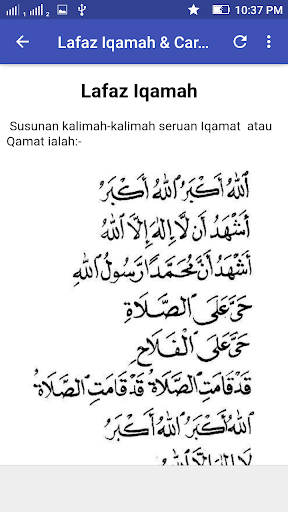 10:37 PM
Lafaz Iqamah & Car...
Lafaz Iqamah
Susunan kalimah-kalimah seruan Iqamat atau
Qamat ialah:-
اَللهُ أَكْبَرُ اَللهُ أَكْبَرُ
أَشْهَدُ أَن لَّا إِلٰهَ إِلَّا اللهُ
أَشْهَدُ أَنَّ مُحَمَّدًا رَسُولُ اللهِ
حَيَّ عَلَى الصَّلَاةِ
حَيَّ عَلَى الْفَلَاحِ
قَدْ قَامَتِ الصَّلَاةُ قَدْ قَامَتِ الصَّلَاةُ
اَللهُ أَكْبَرُ اَللهُ أَكْبَرُ
لَا إِلٰهَ إِلَّا اللهُ